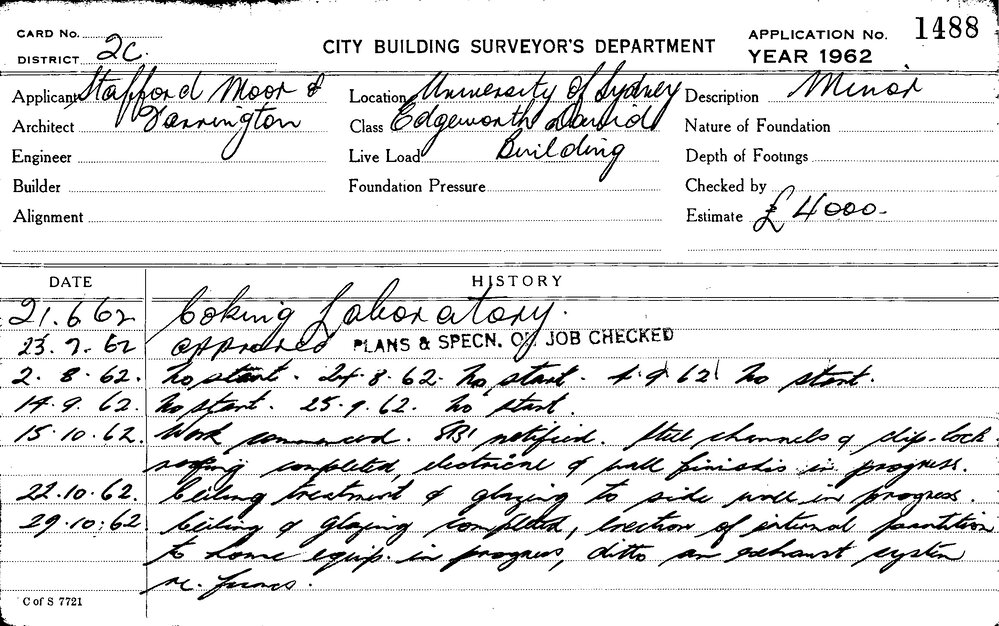 CARD No.
DISTRICT 2C.
CITY BUILDING SURVEYOR'S DEPARTMENT
APPLICATION No. 1488
YEAR 1962
Applicant Stafford Moor &
Architect Farrington
Engineer
Builder
Alignment
Location University of Sydney
Class Edgeworth David
Live Load Building
Foundation Pressure
Description Minor
Nature of Foundation
Depth of Footings
Checked by
Estimate £4000-
DATE HISTORY
21.6.62 Coking Laboratory.
23.7.62 approved PLANS & SPECN. ON JOB CHECKED
2.8.62. No start. 24.8.62. No start. 4.9.62 No start.
14.9.62. No start. 25.9.62. No start.
15.10.62. Work commenced. notified. Steel channels & clip-lock
roofing completed, electrical & wall finishes in progress.
22.10.62. Ceiling treatment & glazing to side wall in progress.
29.10.62. Ceiling & glazing completed, erection of internal partition
to equip. in progress, ditto an exhaust system
C of S 7721